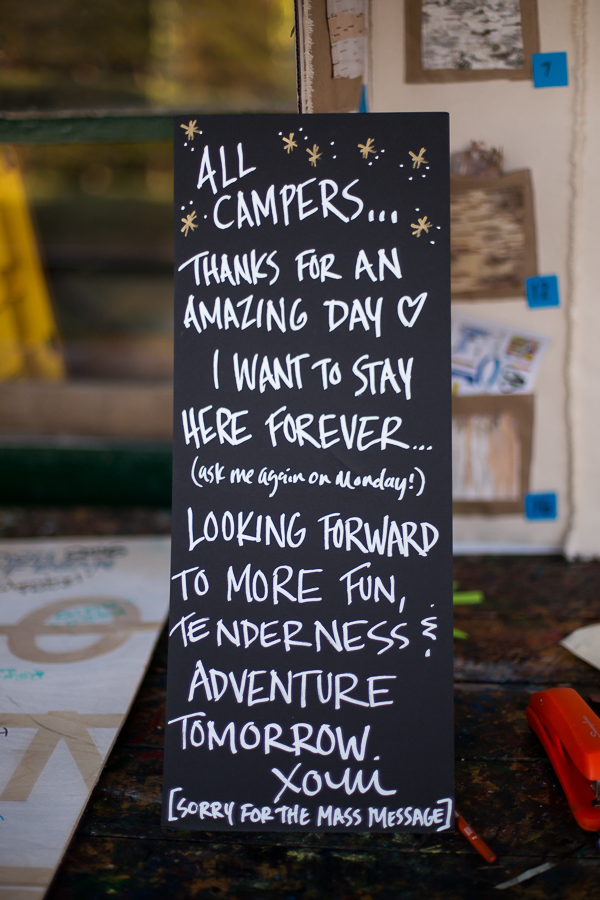 ALL
CAMPERS...
THANKS FOR AN
AMAZING DAY ♡
I WANT TO STAY
HERE FOREVER...
(ask me again on Monday!)
LOOKING FORWARD
TO MORE FUN,
TENDERNESS &
ADVENTURE
TOMORROW.
[SORRY FOR THE MASS MESSAGE]
7